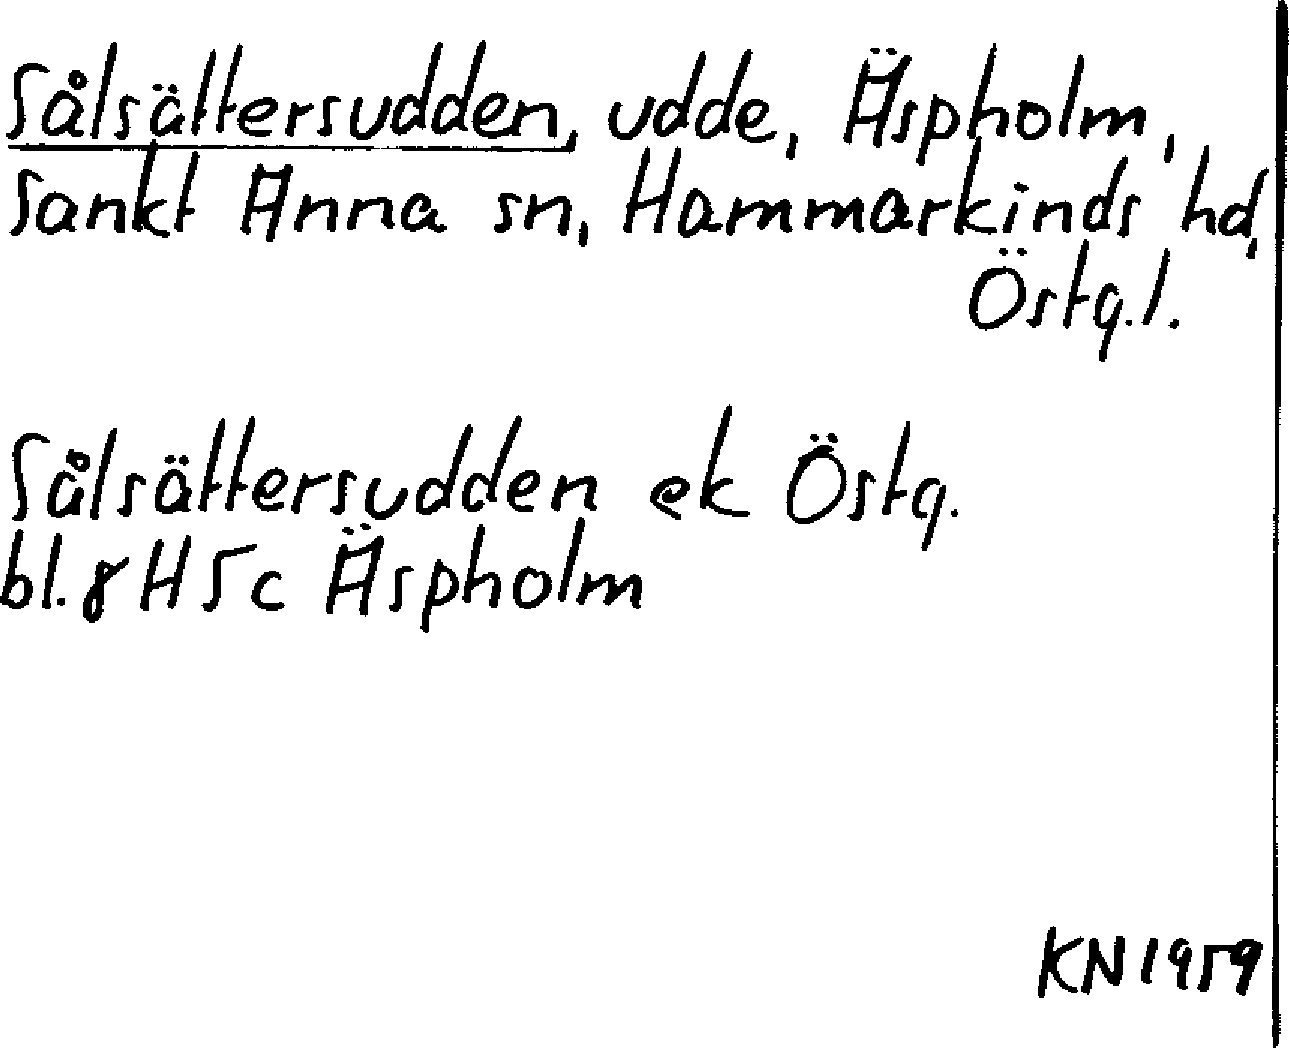 Sålsättersudden, udde, Äspholm,
Sankt Anna sn, Hammarkinds hd,
Östg.l.
Sålsättersudden ek Östg.
bl. 8 H 5c Äspholm
KN 1959